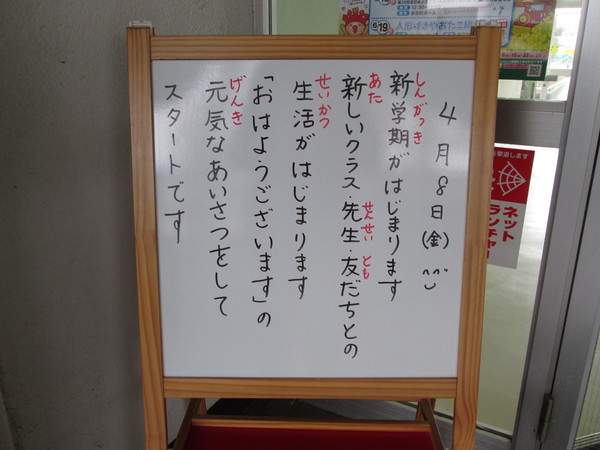 4月8日(金)
しんがっき
新学期がはじまります
あた
せんせい とも
新しいクラス・先生・友だちとの
せいかつ
生活がはじまります
「おはようございます」の
げんき
元気なあいさつをして
スタートです
6/19
ネット
ランチャー